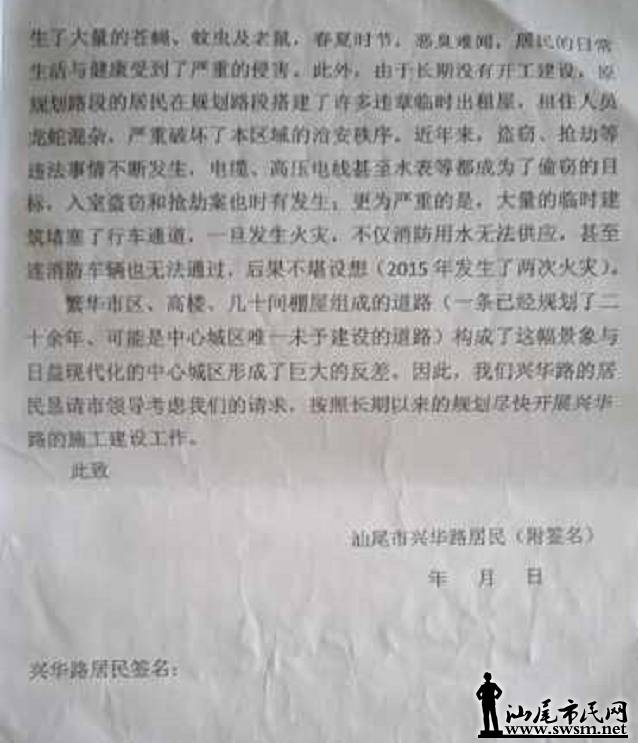 生了大量的苍蝇、蚊虫及老鼠，春夏时节，恶臭难闻，居民的日常
生活与健康受到了严重的侵害。此外，由于长期没有开工建设，原
规划路段的居民在规划路段搭建了许多违章临时出租屋，租住人员
龙蛇混杂，严重破坏了本区域的治安秩序。近年来，盗窃、抢劫等
违法事情不断发生，电缆、高压电线甚至水表等都成为了偷窃的目
标，入室盗窃和抢劫案也时有发生；更为严重的是，大量的临时建
筑堵塞了行车通道，一旦发生火灾，不仅消防用水无法供应，甚至
连消防车辆也无法通过，后果不堪设想（2015年发生了两次火灾）。
繁华市区、高楼、几十间棚屋组成的道路（一条已经规划了二
十余年、可能是中心城区唯一未予建设的道路）构成了这幅景象与
日益现代化的中心城区形成了巨大的反差。因此，我们兴华路的居
民恳请市领导考虑我们的请求，按照长期以来的规划尽快开展兴华
路的施工建设工作。
此致
汕尾市兴华路居民（附签名）
年 月 日
兴华路居民签名：
汕尾市民网
www.swsm.net